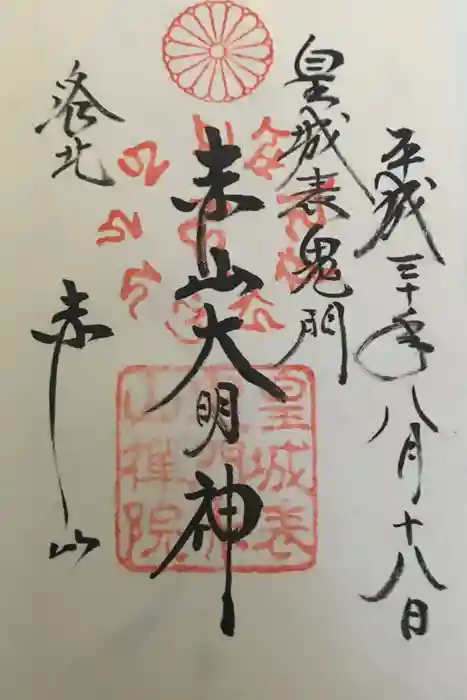 平成三十年八月十八日
皇城表鬼門
赤山大明神
洛北
赤山
皇城表
鬼門赤
山禅院